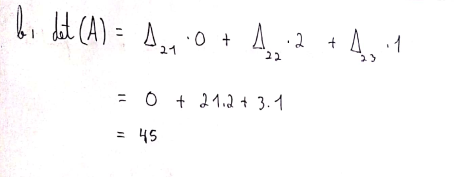 b, det(A) = Δ₂₁ · 0 + Δ₂₂ · 2 + Δ₂₃ · 1
= 0 + 21.2 + 3.1
= 45